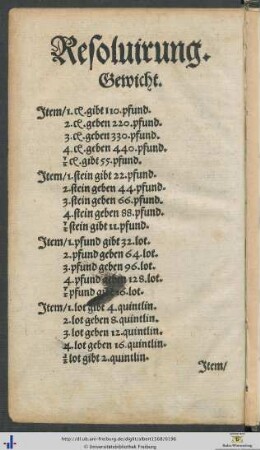 Resoluirung.
Gewicht.
Item/1.cℓ.gibt 110.pfund.
2.cℓ.geben 220.pfund.
3.cℓ.geben 330.pfund.
4.cℓ.geben 440.pfund.
½ cℓ.gibt 55.pfund.
Item/1.stein gibt 22.pfund.
2.stein geben 44.pfund.
3.stein geben 66.pfund.
4.stein geben 88.pfund.
½ stein gibt 11.pfund.
Item/1.pfund gibt 32.lot.
2.pfund geben 64.lot.
3.pfund geben 96.lot.
4.pfund geben 128.lot.
½ pfund gibt 16.lot.
Item/1.lot gibt 4.quintlin.
2.lot geben 8.quintlin.
3.lot geben 12.quintlin.
4.lot geben 16.quintlin.
½ lot gibt 2.quintlin.
Item/
© Universitätsbibliothek Freiburg
Baden-Württemberg